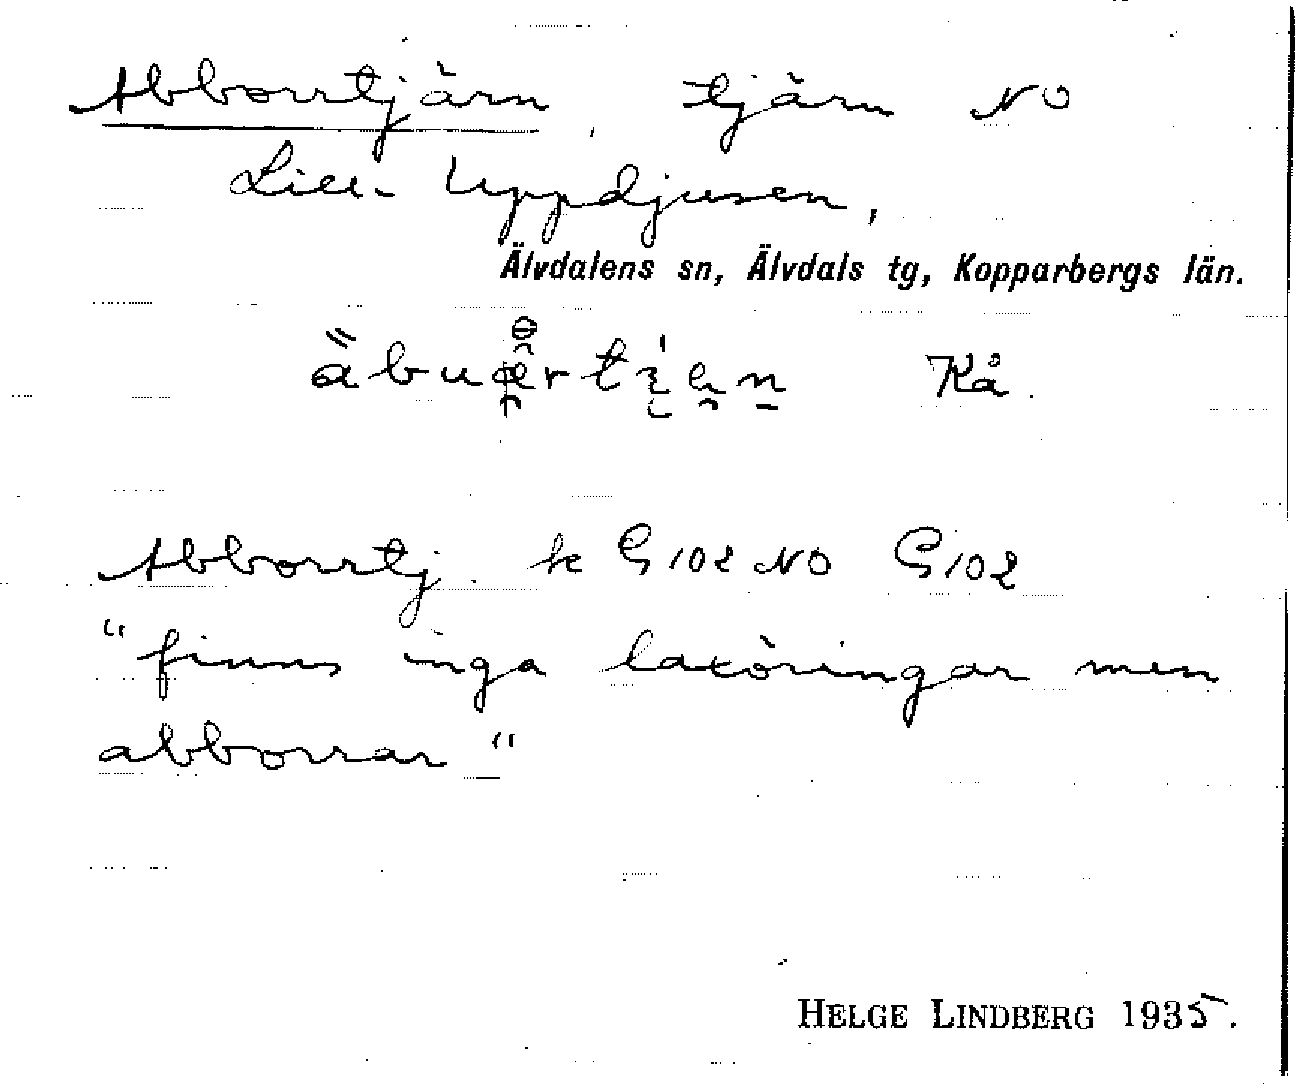 Abborrtjärn, tjärn NO
Lill-Uppdjusen,
Älvdalens sn, Älvdals tg, Kopparbergs län.
Kå.
Abborrtj. k G 102 NO G 102
"finns inga laxöringar men
abborrar"
HELGE LINDBERG 1935.